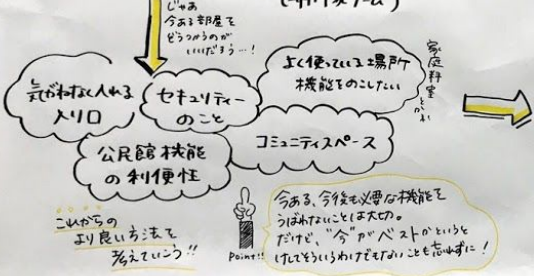 じゃあ
今ある部屋を
どうつかうのが
いいだろう…!
気がねなく入れる
入り口
セキュリティー
のこと
よく使っている場所
機能をのこしたい
家庭科室とか
コミュニティスペース
公民館機能
の利便性
これからの
より良い方法を
考えていこう!!
Point!!
今ある、今後も必要な機能を
うばわないことは大切。
だけど、"今"がベストかというと
けしてそういうわけでもないことも忘れずに!